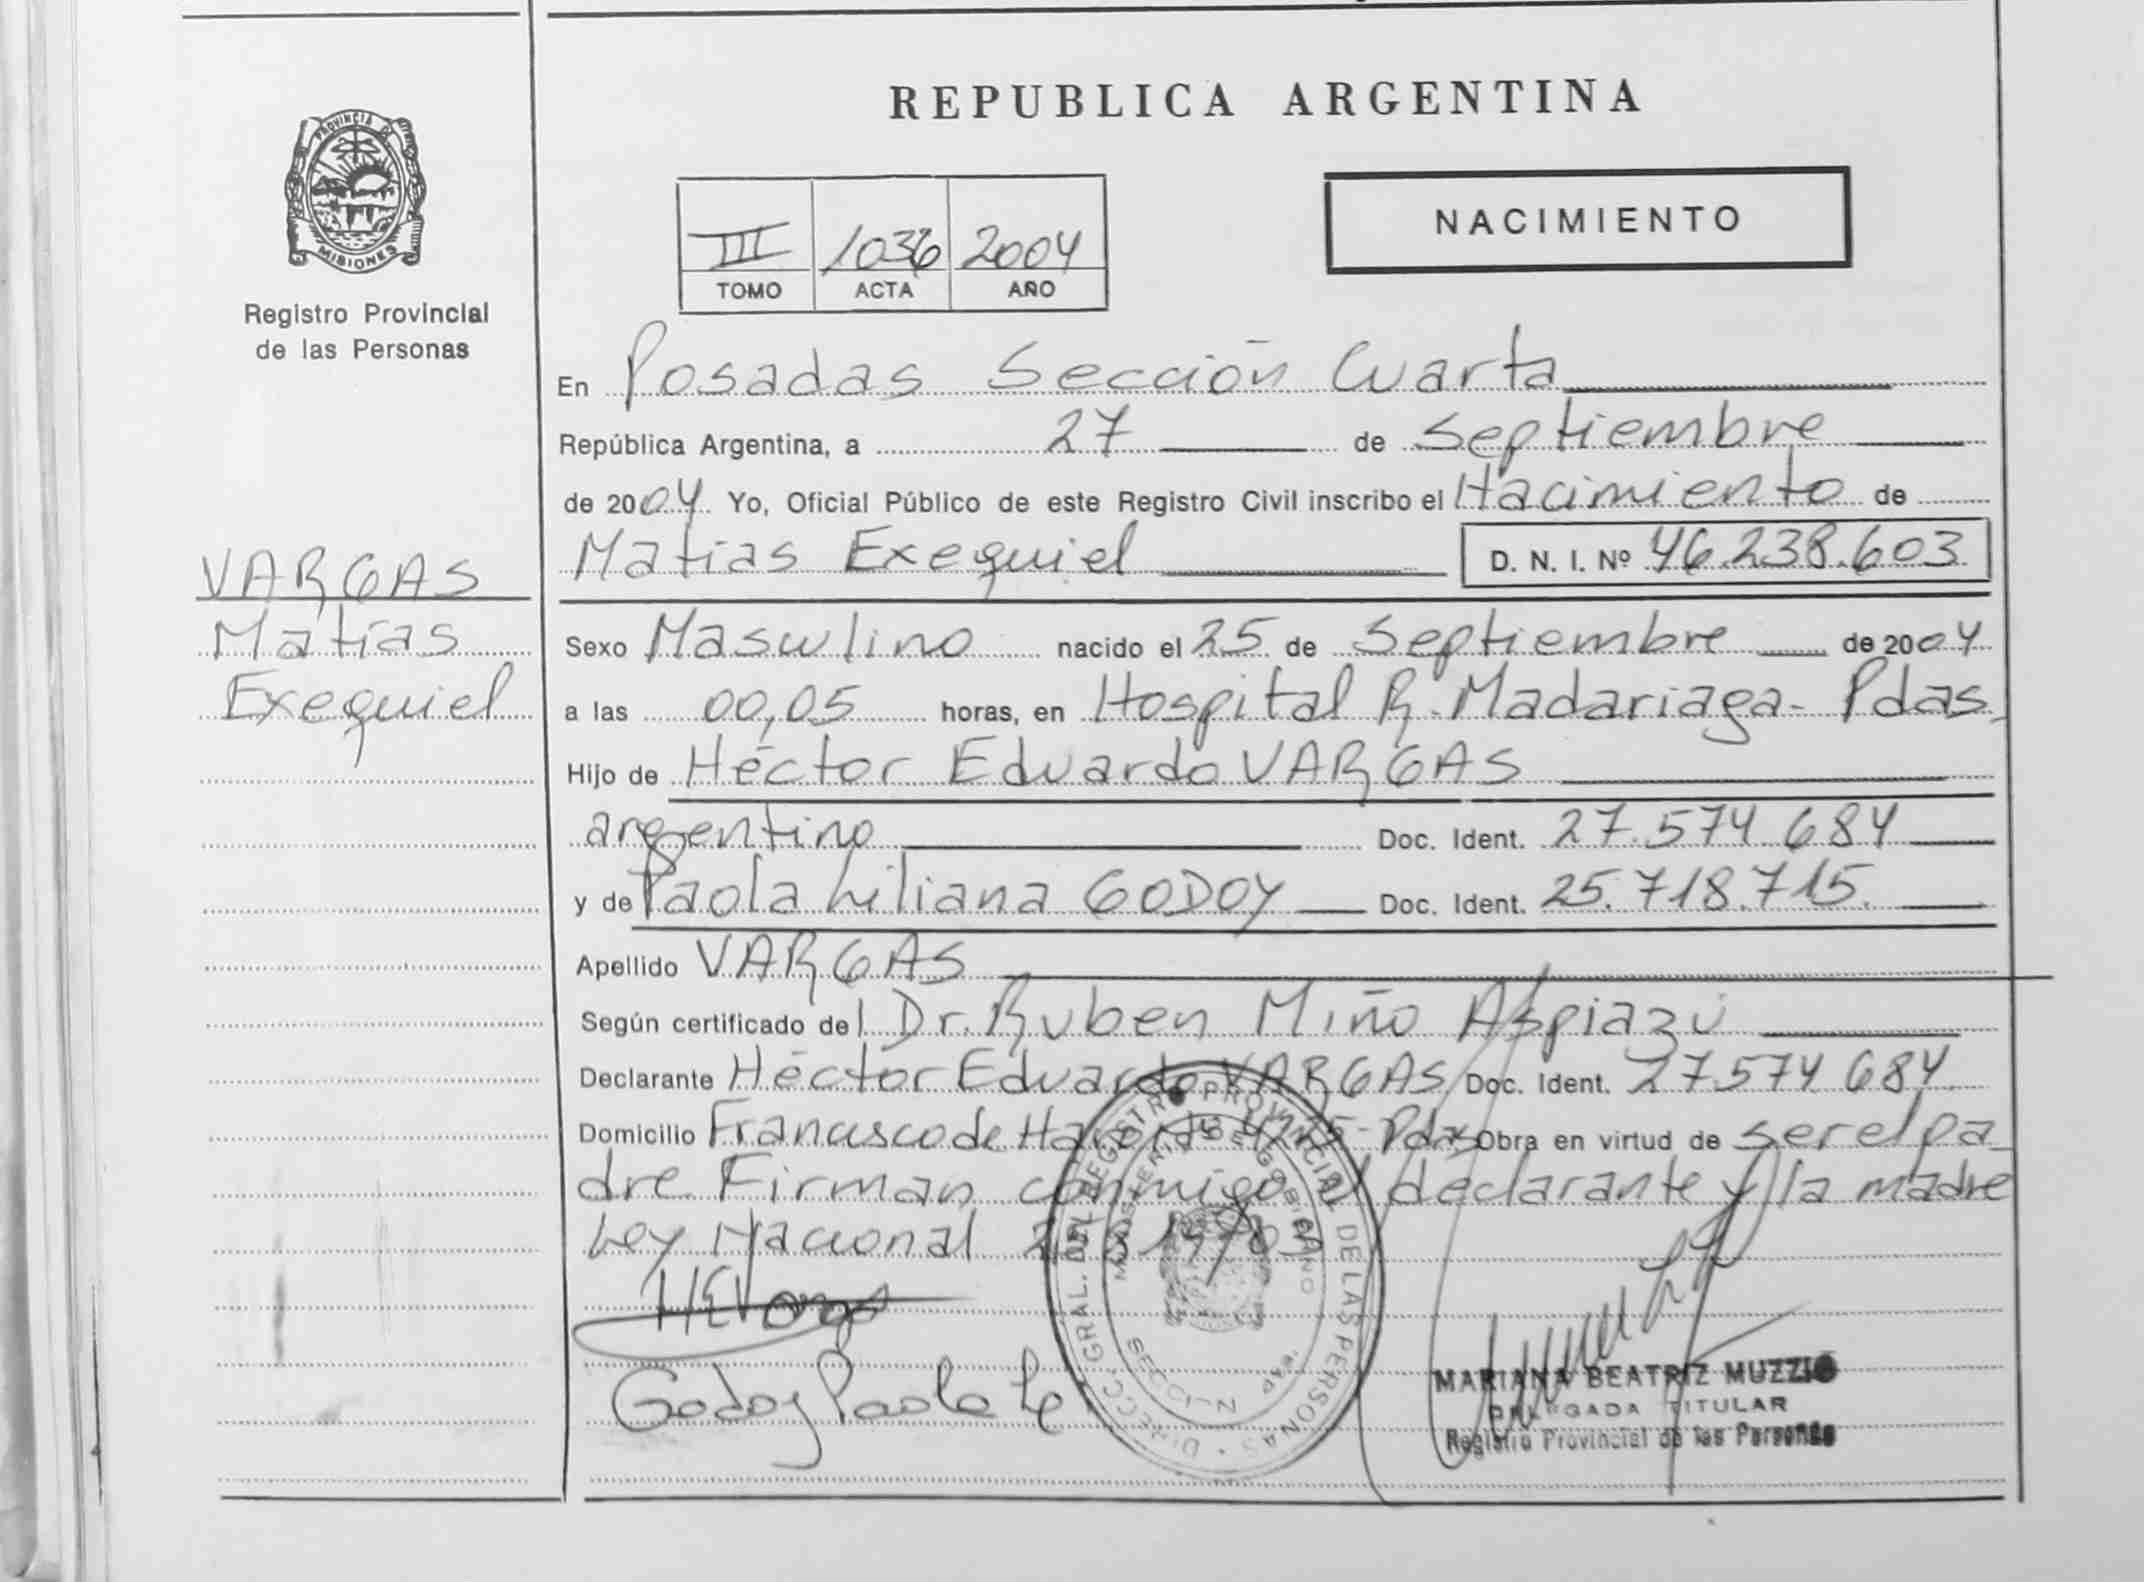 REPUBLICA ARGENTINA
PROVINCIA DE
MISIONES
Registro Provincial
de las Personas
NACIMIENTO
III 1036 2004
TOMO ACTA AÑO
En Posadas Sección Cuarta
República Argentina, a 27 de Septiembre
de 2004 Yo, Oficial Público de este Registro Civil inscribo el Nacimiento de
Matias Exequiel D. N. I. Nº 46.238.603
VARGAS
Matías
Exequiel
Sexo Masculino nacido el 25 de Septiembre de 2004
a las 00,05 horas, en Hospital R. Madariaga - Pdas.
Hijo de Héctor Eduardo VARGAS
argentino Doc. Ident. 27.574.684
y de Paola Liliana GODOY Doc. Ident. 25.718.715.
Apellido VARGAS
Según certificado del Dr. Ruben Miño Aspiazú
Declarante Héctor Eduardo VARGAS Doc. Ident. 27574684
Domicilio Francisco de - Pdas Obra en virtud de ser el pa
dre Firman conmigo el declarante y la madre
Ley Nacional
HEVargas
Godoy Paola
DIRECC. GRAL. DEL REGISTRO PROVINCIAL DE LAS PERSONAS
MINISTERIO DE GOBIERNO
MARIANA BEATRIZ MUZZIO
DELEGADA TITULAR
Registro Provincial de las Personas